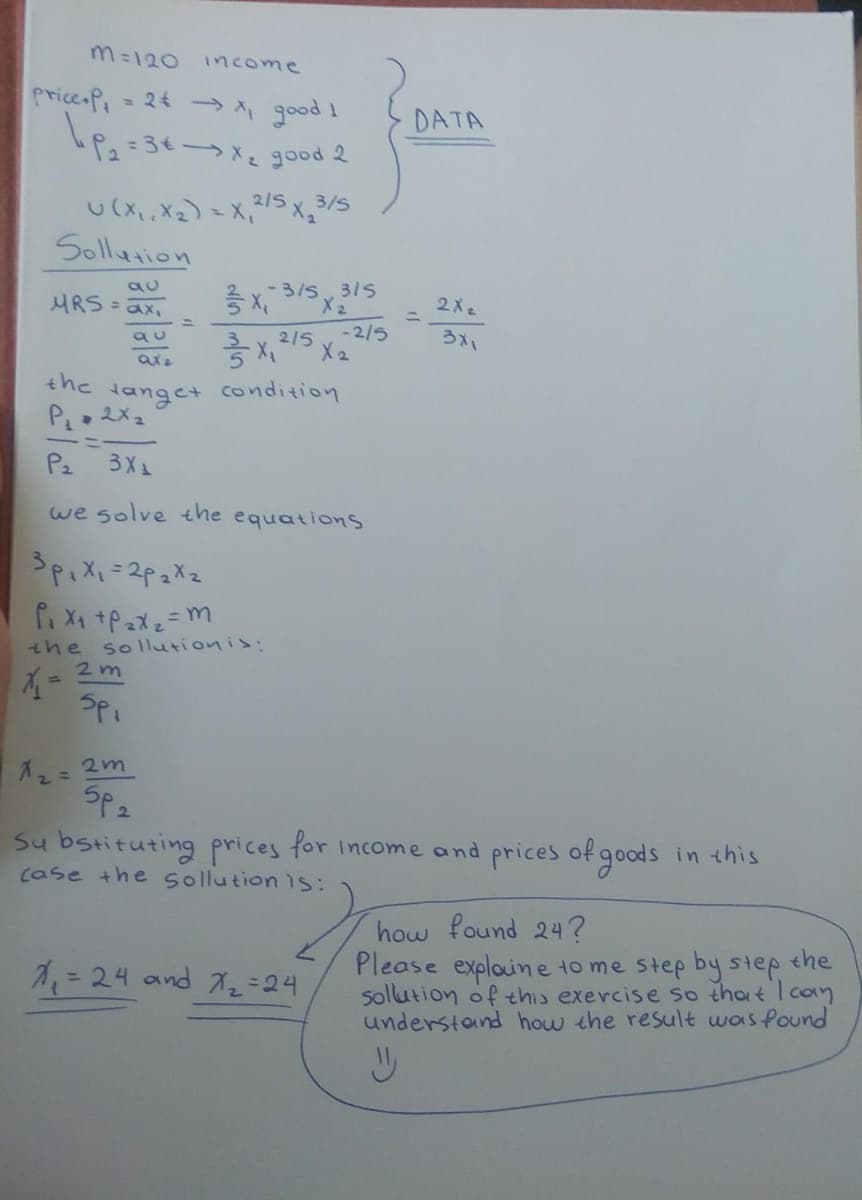 m=120 income
price→P₁ = 2€ → x₁ good 1
P₂ = 3€ → x₂ good 2
DATA
U(x₁,x₂) = x₁^2/5 x₂^3/5
Sollution
MRS = (au/ax₁)/(au/ax₂) = (2/5 x₁^-3/5 x₂^3/5)/(3/5 x₁^2/5 x₂^-2/5) = 2x₂/3x₁
the tanget condition
P₁/P₂ = 2x₂/3x₁
we solve the equations
3p₁x₁=2p₂x₂
P₁x₁+P₂x₂=m
the sollution is:
x₁ = 2m/5p₁
x₂ = 2m/5p₂
Substituting prices for income and prices of goods in this
case the sollution is:
x₁ = 24 and x₂ = 24
how found 24?
Please explaine to me step by step the
sollution of this exercise so that I can
understand how the result was found